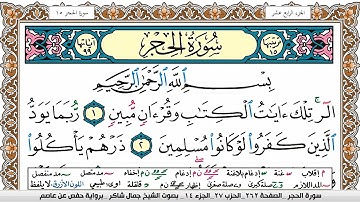 سورة الحجر ١٥
الجزء الرابع عشر
ترتيبها ١٥
سُورَةُ الحِجْرِ
آياتها ٩٩
بِسْمِ ٱللَّهِ ٱلرَّحْمَٰنِ ٱلرَّحِيمِ
الٓر ۚ تِلْكَ ءَايَٰتُ ٱلْكِتَٰبِ وَقُرْءَانٍ مُّبِينٍ ١ رُّبَمَا يَوَدُّ
ٱلَّذِينَ كَفَرُوا۟ لَوْ كَانُوا۟ مُسْلِمِينَ ٢ ذَرْهُمْ يَأْكُلُوا۟
سورة الحجر، الصفحة ٢٦٢ الحزب ٢٧ الجزء ١٤ بصوت الشيخ جمال شاكر برواية حفص عن عاصم